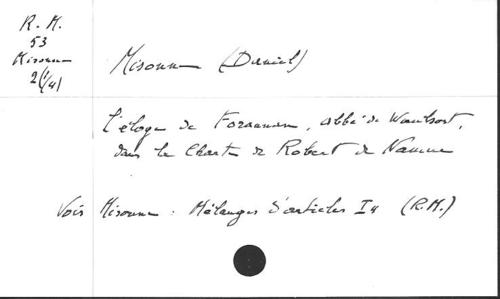 R. M.
53
Misonne
2(1/4)
Misonne (Daniel)
L'éloge de Forannan, abbé de Waulsort,
dans la Charte de Robert de Namur
Voir Misonne : Mélanges d'articles I4 (R.M.)